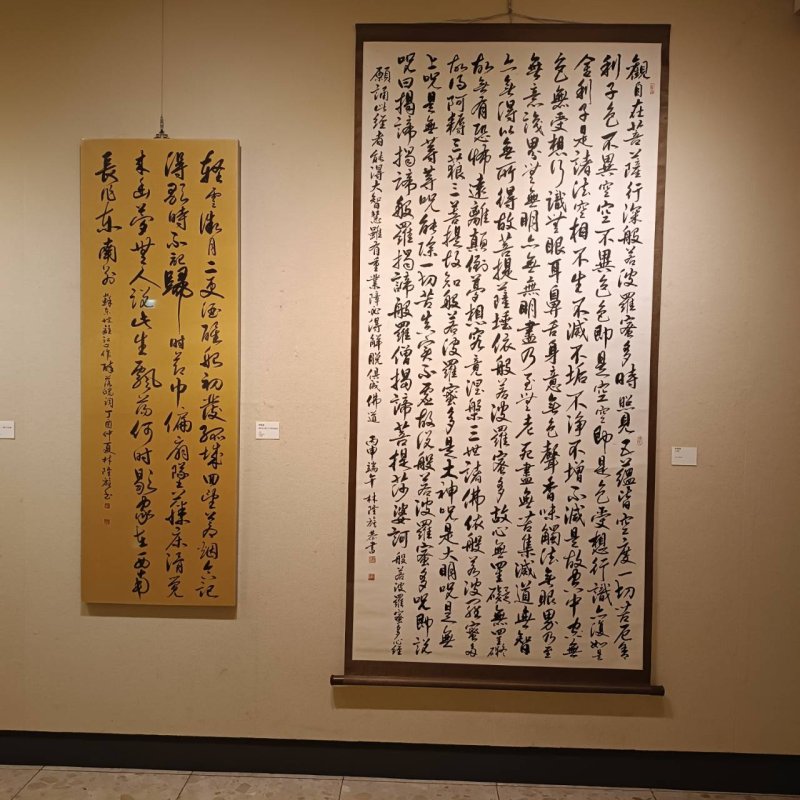 觀自在菩薩行深般若波羅蜜多時照見五蘊皆空度一切苦厄舍
利子色不異空空不異色色即是空空即是色受想行識亦復如是
舍利子是諸法空相不生不滅不垢不淨不增不減是故空中無
色無受想行識無眼耳鼻舌身意無色聲香味觸法無眼界乃至
無意識界無無明亦無無明盡乃至無老死盡無苦集滅道無智
亦無得以無所得故菩提薩埵依般若波羅蜜多故心無罣礙無罣礙
故無有恐怖遠離顛倒夢想究竟涅槃三世諸佛依般若波羅蜜多
故得阿耨三藐三菩提故知般若波羅蜜多是大神咒是大明咒是無
上咒是無等等咒能除一切苦真實不虛故說般若波羅蜜多咒即說
咒曰揭諦揭諦般羅揭諦般羅僧揭諦菩提莎婆訶 般若波羅蜜多心經
願誦此經者能得大智慧雖有重業障必得解脫俱成佛道 丙申端午 林隆達恭書
輕雲微月二更酒醒船初發孤城回望蒼煙合記
得歌時不記歸時節巾偏扇墜藤床滑覺
來幽夢無人說此生飄蕩何時歇家在西南
長作東南別 蘇東坡離京口作 醉落魄詞 丁酉仲夏林隆達書